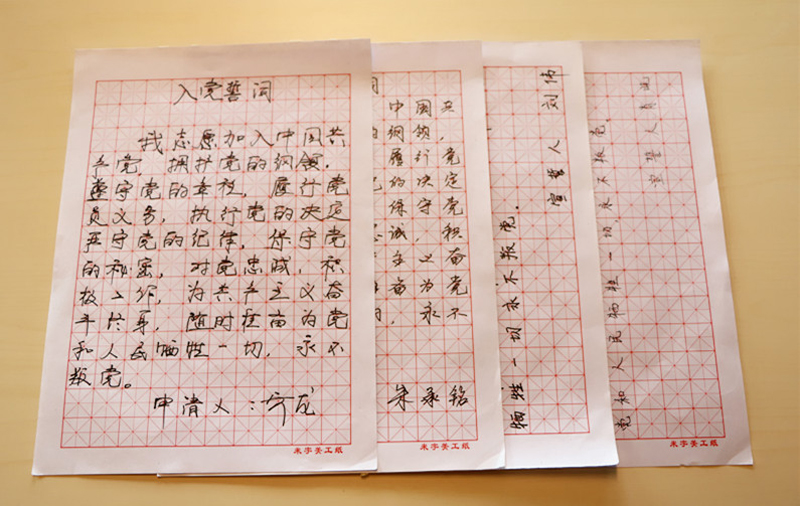 入党誓词
我志愿加入中国共
产党 拥护党的纲领,
遵守党的章程, 履行党
员义务, 执行党的决定
严守党的纪律, 保守党
的秘密, 对党忠诚, 积
极工作, 为共产主义奋
斗终身, 随时准备为党
和人民牺牲一切, 永不
叛党。
申请人:
米字美工纸
词
中国共
的纲领,
履行党
的决定
保守党
诚, 积
主义奋
备为党
, 永不
朱承铭
米字美工纸
牺牲一切永不叛党。
宣誓人 刘伟
米字美工纸
党和人民牺牲一切,永不叛党。
宣誓人
米字美工纸